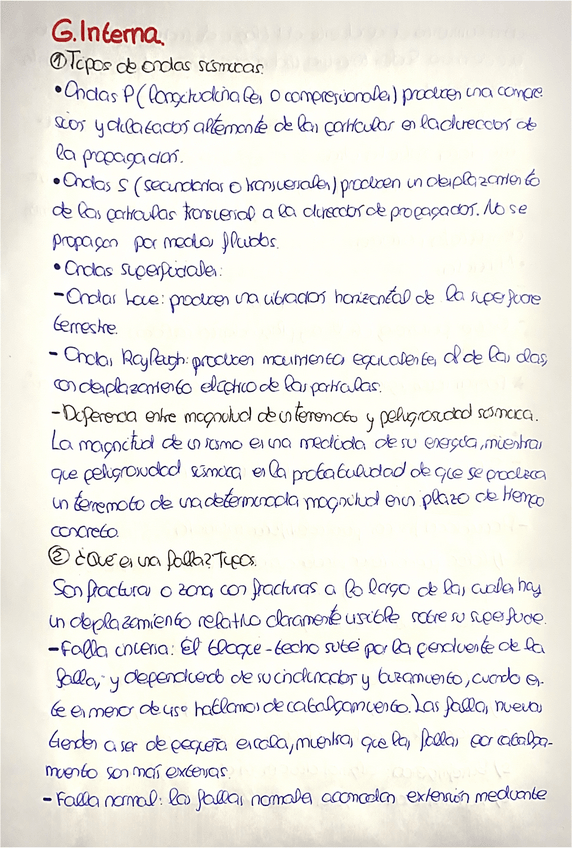 G. Interna.
① Tipos de ondas sísmicas.
• Ondas P (longitudinales o compresionales) producen una compre
sión y dilatación alternante de las partículas en la dirección de
la propagación.
• Ondas S (secundarias o transversales) producen un desplazamiento
de las partículas transversal a la dirección de propagación. No se
propagan por medios fluidos.
• Ondas superficiales:
- Ondas Love: producen una vibración horizontal de la superficie
terrestre.
- Ondas Rayleigh: producen movimientos equivalentes al de las olas,
con desplazamiento elíptico de las partículas.
- Diferencia entre magnitud de un terremoto y peligrosidad sísmica.
La magnitud de un sismo es una medida de su energía, mientras
que peligrosidad sísmica es la probabilidad de que se produzca
un terremoto de una determinada magnitud en un plazo de tiempo
concreto.
② ¿Qué es una falla? Tipos.
Son fracturas o zona con fracturas a lo largo de las cuales hay
un desplazamiento relativo claramente visible sobre su superficie.
- Falla inversa: El bloque-techo sube por la pendiente de la
falla, y dependiendo de su inclinación y buzamiento, cuando es-
te es menor de 45º hablamos de cabalgamiento. Las fallas nuevas
tienden a ser de pequeña escala, mientras que las fallas por cabalga-
miento son más extensas.
- Falla normal: las fallas normales acomodan extensión mediante